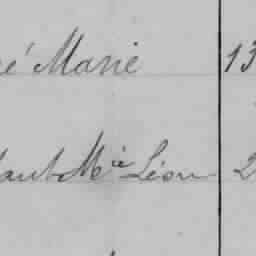 é Marie 13
M^ie Léon 2